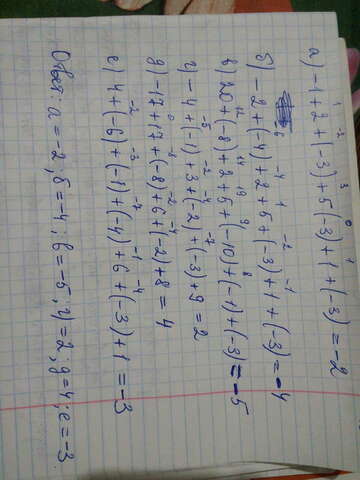 а) -1+2+(-3)+5(-3)+1+(-3)=-2
б) -2+(-4)+2+5+(-3)+1+(-3)=-4
в) 20+(-8)+2+5+(-10)+(-1)+(-3)=-5
г) -4+(-1)+3+(-2)+(-3)+9=2
g) -17+17+(-8)+6+(-2)+8=4
е) 4+(-6)+(-1)+(-4)+6+(-3)+1=-3
Ответ: а=-2; б=-4; в=-5; г)=2; g=4; е=-3